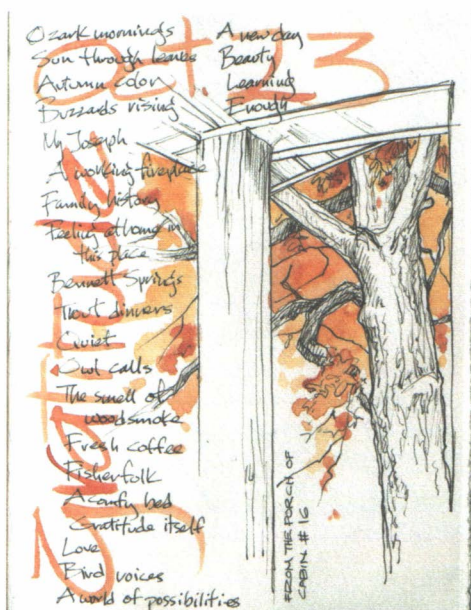 Oct. 23
Gratitude
Ozark mornings
Sun through leaves
Autumn color
Buzzards rising
My Joseph
A working fireplace
Family history
Feeling at home in
this place
Bennett Springs
Trout dinners
Quiet
Owl calls
The smell of
woodsmoke
Fresh coffee
Fisherfolk
A comfy bed
Gratitude itself
Love
Bird voices
A world of possibilities
A new day
Beauty
Learning
Enough
FROM THE PORCH OF
CABIN # 16